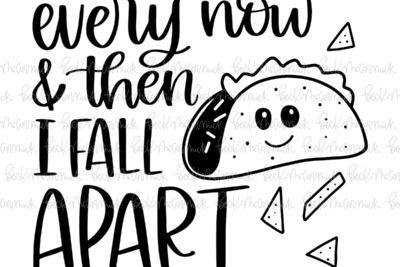 every now
& then
I FALL
APART